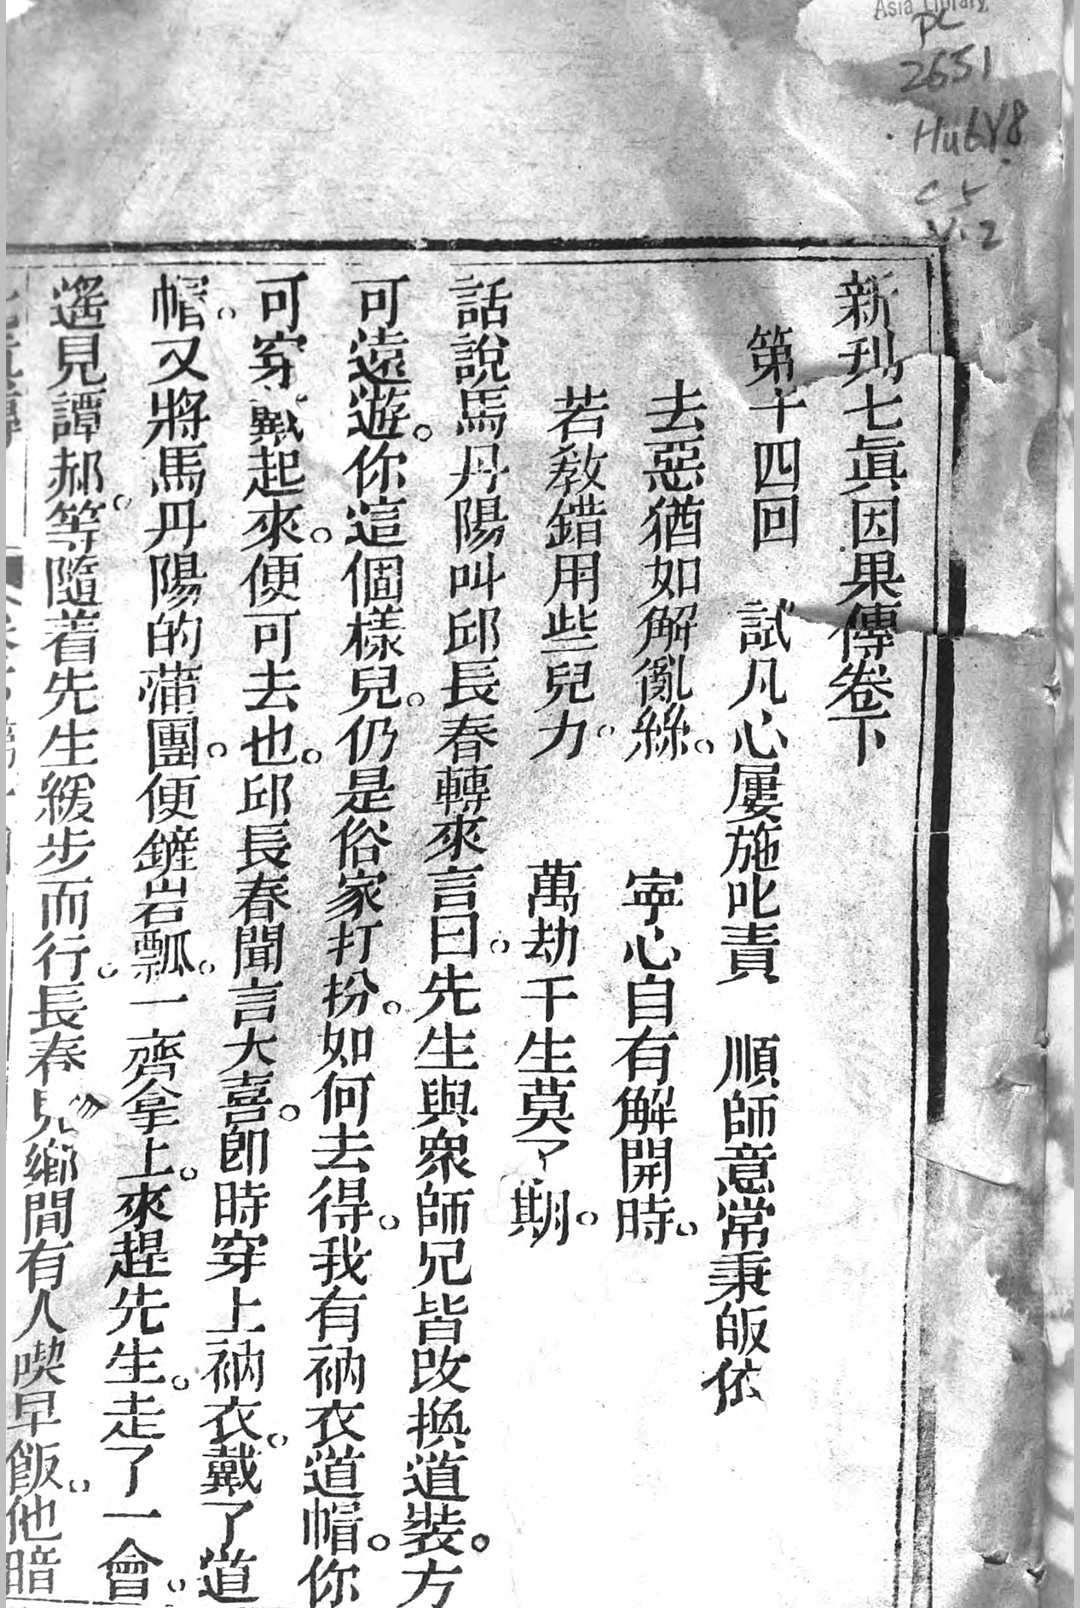 Asia Library
PL
2651
Hu6Y8
c5
v.2
新刋七眞因果傳卷下
第十四回 試凡心屢施叱責 順師意常秉皈依
去惡猶如解亂絲。 寜心自有解開時。
若教錯用些兒力。 萬劫千生莫了期。
話說馬丹陽叫邱長春轉來言曰。先生與衆師兄皆改換道裝。方
可遠遊。你這個樣兒。仍是俗家打扮。如何去得。我有衲衣道帽。你
可穿戴起來。便可去也。邱長春聞言大喜。卽時穿上衲衣。戴了道
帽。又將馬丹陽的蒲團。便鏟岩瓢。一齊拿上。來趕先生。走了一會。
遙見譚郝。等隨着先生緩步而行。長春見鄉間有人喫早飯。他暗